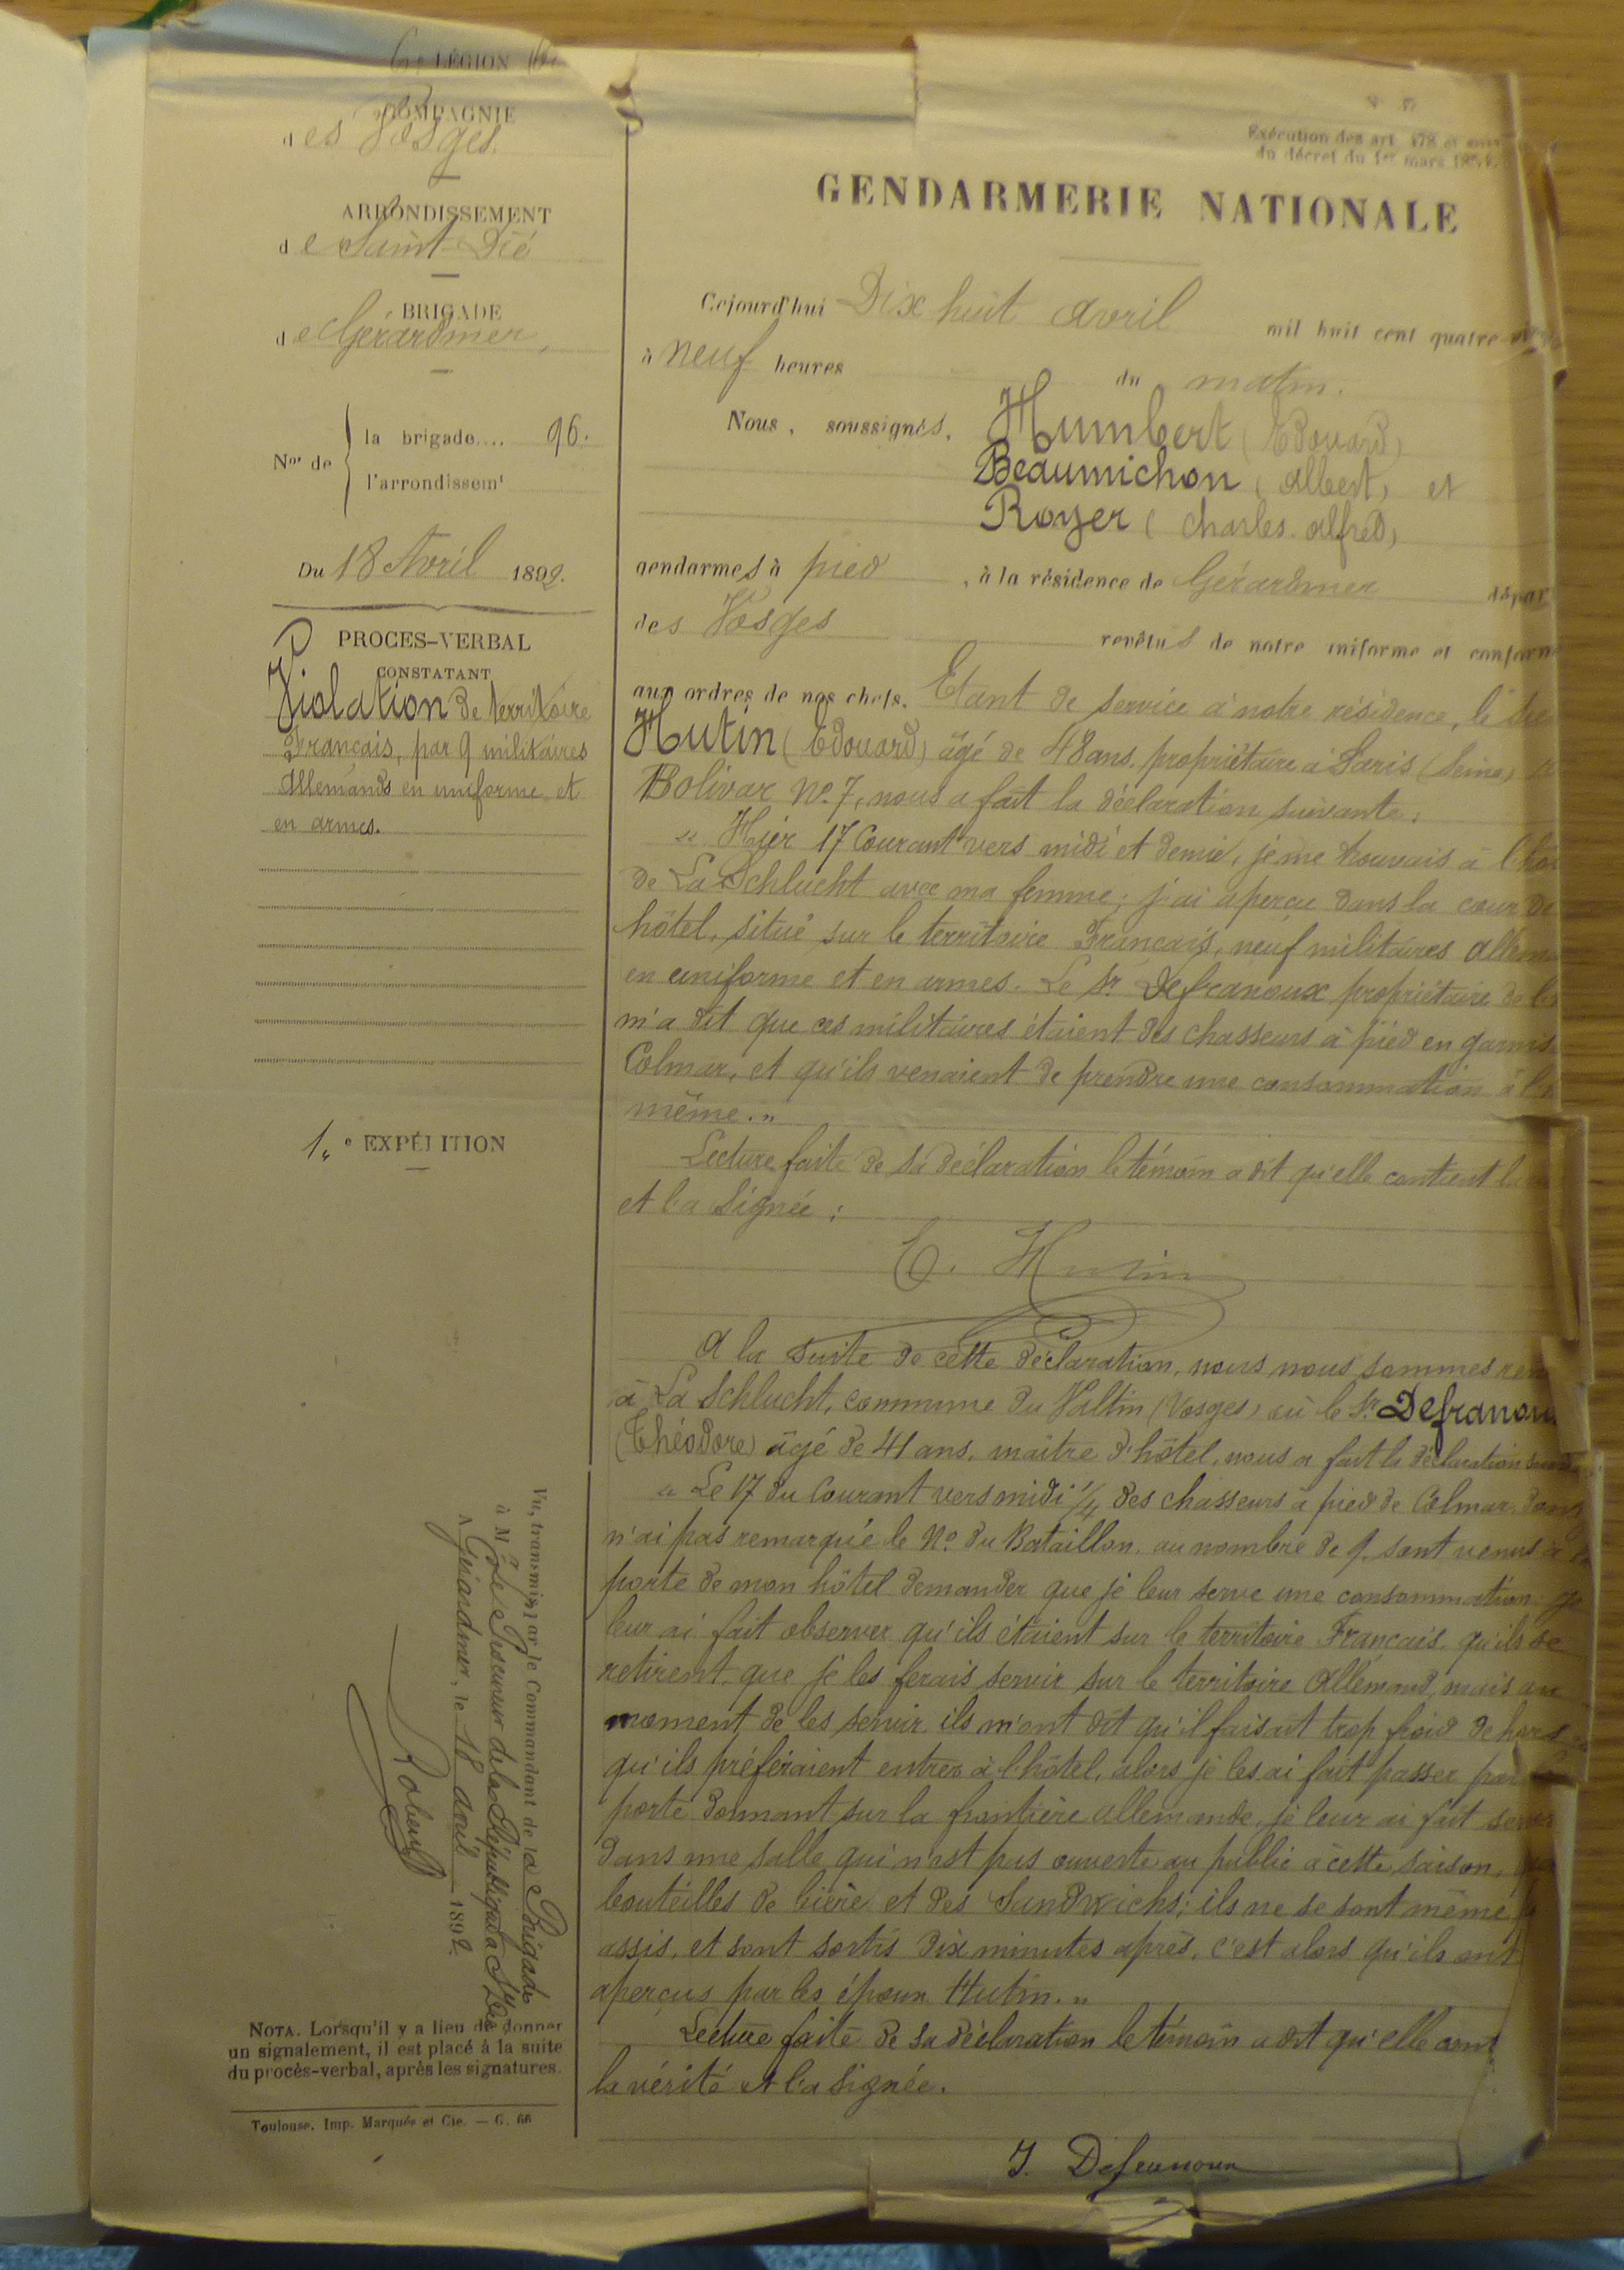 6e LÉGION
COMPAGNIE
des Vosges.
ARRONDISSEMENT
de Saint-Dié
BRIGADE
de Gérardmer,
Nos de
la brigade.... 96.
l'arrondissemt
Du 18 Avril 1892.
PROCES-VERBAL
CONSTATANT
Violation de territoire
Français, par 9 militaires
Allemands en uniforme et
en armes.
1re EXPÉDITION
Vu, transmis par le Commandant de la Brigade
à M. le Procureur de la République à St Dié
A Gérardmer, le 18 avril 1892.
NOTA. Lorsqu'il y a lieu de donner
un signalement, il est placé à la suite
du procès-verbal, après les signatures.
Toulouse. Imp. Marqués et Cie. — G. 66
Exécution des art. 478 et
du décret du 1er mars 1854.
GENDARMERIE NATIONALE
Cejourd'hui Dix huit avril mil huit cent quatre
à neuf heures du matin.
Nous, soussignés, Humbert (Edouard)
Beaumichon (Albert) et
Royer (Charles. Alfred)
gendarmes à pied, à la résidence de Gérardmer dépar
des Vosges revêtus de notre uniforme et conform
aux ordres de nos chefs. Etant de service à notre résidence, le
Hutin (Edouard) âgé de 48 ans, propriétaire à Paris (Seine)
Bolivar No. 7, nous a fait la déclaration suivante:
" Hier 17 Courant vers midi et demie, je me trouvais à l'hô
de La Schlucht avec ma femme; j'ai aperçu dans la cour de
hôtel, situé sur le territoire Français, neuf militaires allem
en uniforme et en armes. Le Sr Defranoux propriétaire de l'
m'a dit que ces militaires étaient des chasseurs à pied en garnis
Colmar, et qu'ils venaient de prendre une consommation à l'
même. "
Lecture faite de sa déclaration le témoin a dit qu'elle contient la
et l'a signée:
E. Hutin
A la suite de cette déclaration, nous nous sommes ren
à La Schlucht, commune du Valtin (Vosges) où le Sr Defranou
(Théodore) âgé de 41 ans, maître d'hôtel, nous a fait la déclaration
" Le 17 du Courant vers midi 1/4 des chasseurs à pied de Colmar, dont
n'ai pas remarqué le No. du Bataillon, au nombre de 9, sont venus à
porte de mon hôtel demander que je leur serve une consommation, je
leur ai fait observer qu'ils étaient sur le territoire Français, qu'ils se
retirent, que je les ferais servir sur le territoire Allemand, mais au
moment de les servir ils m'ont dit qu'il faisait trop froid dehors
qu'ils préféraient entrer à l'hôtel, alors je les ai fait passer par
porte donnant sur la frontière allemande, je leur ai fait servir
dans une salle qui n'est pas ouverte au public à cette saison,
bouteilles de bière et des Sandwichs; ils ne se sont même
assis, et sont sortis dix minutes après, c'est alors qu'ils ont
aperçus par les époux Hutin. "
Lecture faite de sa déclaration le témoin a dit qu'elle cont
la vérité et l'a signée.
T. Defranoux